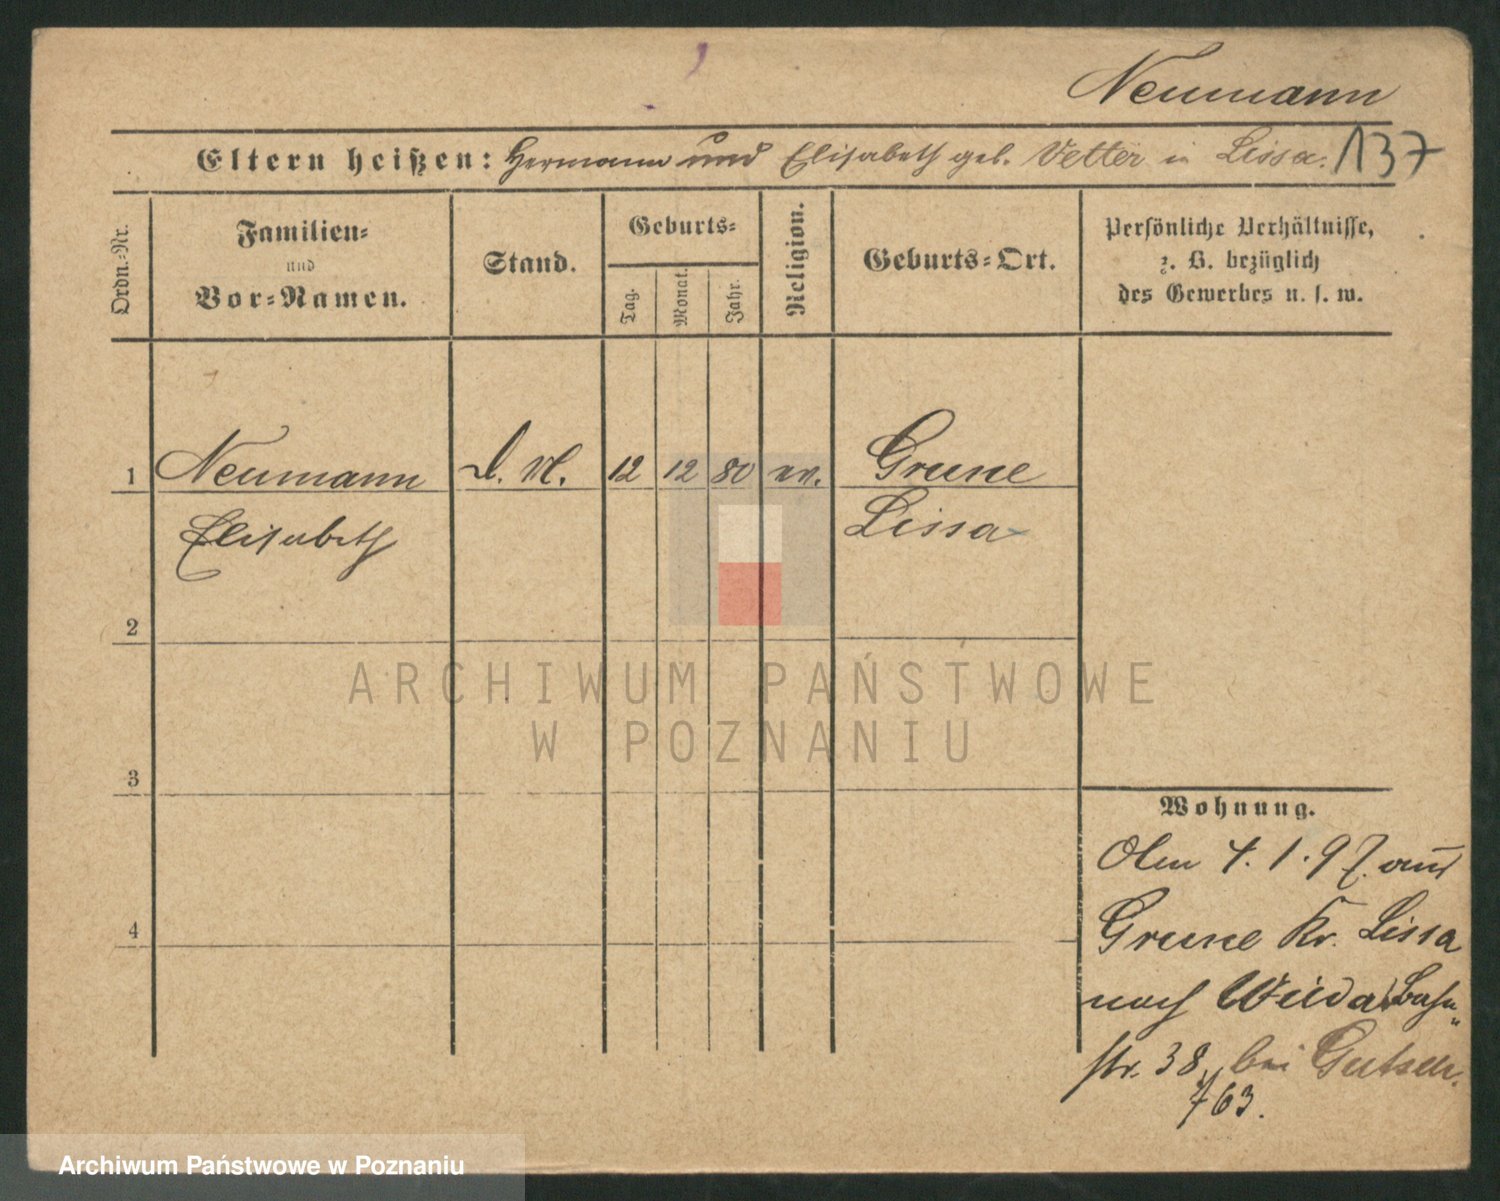 Neumann
Eltern heißen: Hermann und Elisabeth geb. Vetter in Lissa. 137
Ordn.-Nr.
Familien-
und
Vor-Namen.
Stand.
Geburts-
Tag.
Monat.
Jahr.
Religion.
Geburts-Ort.
Persönliche Verhältnisse,
z. B. bezüglich
des Gewerbes u. s. w.
1 Neumann D. M. 12 12 80 ev. Grune
Elisabeth Lissa
2
3
4
Wohnung.
Den 4. 1. 97. aus
Grune Kr. Lissa
nach Wilda
str. 38, bei
763.
ARCHIWUM PAŃSTWOWE
W POZNANIU
Archiwum Państwowe w Poznaniu